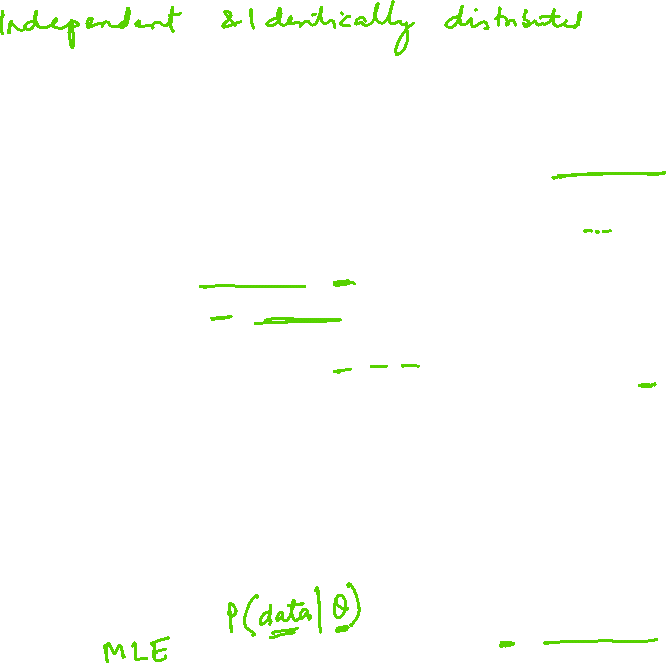 Independent & Identically distributed
P(data|θ)
MLE